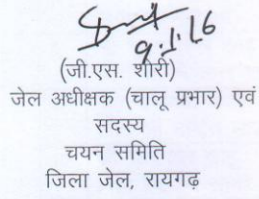 9.1.16
(जी.एस. शोरी)
जेल अधीक्षक (चालू प्रभार) एवं
सदस्य
चयन समिति
जिला जेल, रायगढ़